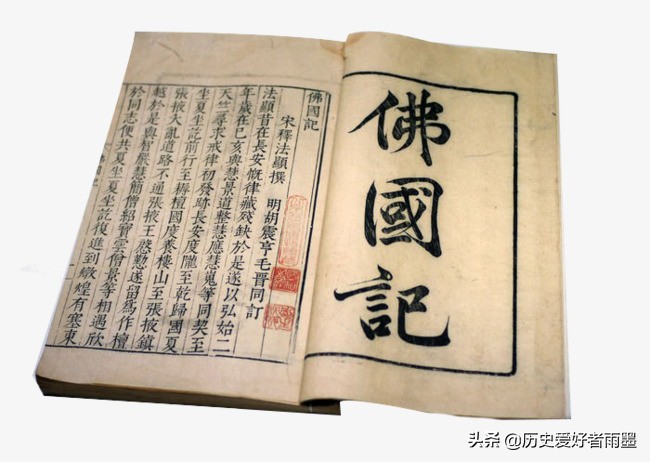 佛國記
佛國記
宋釋法顯撰 明胡震亨毛晉同訂
法顯昔在長安慨律藏殘缺於是遂以弘始二
年歲在己亥與慧景道整慧應慧嵬等同契至
天竺尋求戒律初發跡長安度隴至乾歸國夏
坐夏坐訖前行至耨檀國度養樓山至張掖鎮
張掖大亂道路不通張掖王慇懃遂留爲作檀
越於是與智嚴慧簡僧紹寶雲僧景等相遇欣
於同志便共夏坐夏坐訖復進到燉煌有塞東
头条 @历史爱好者雨墨